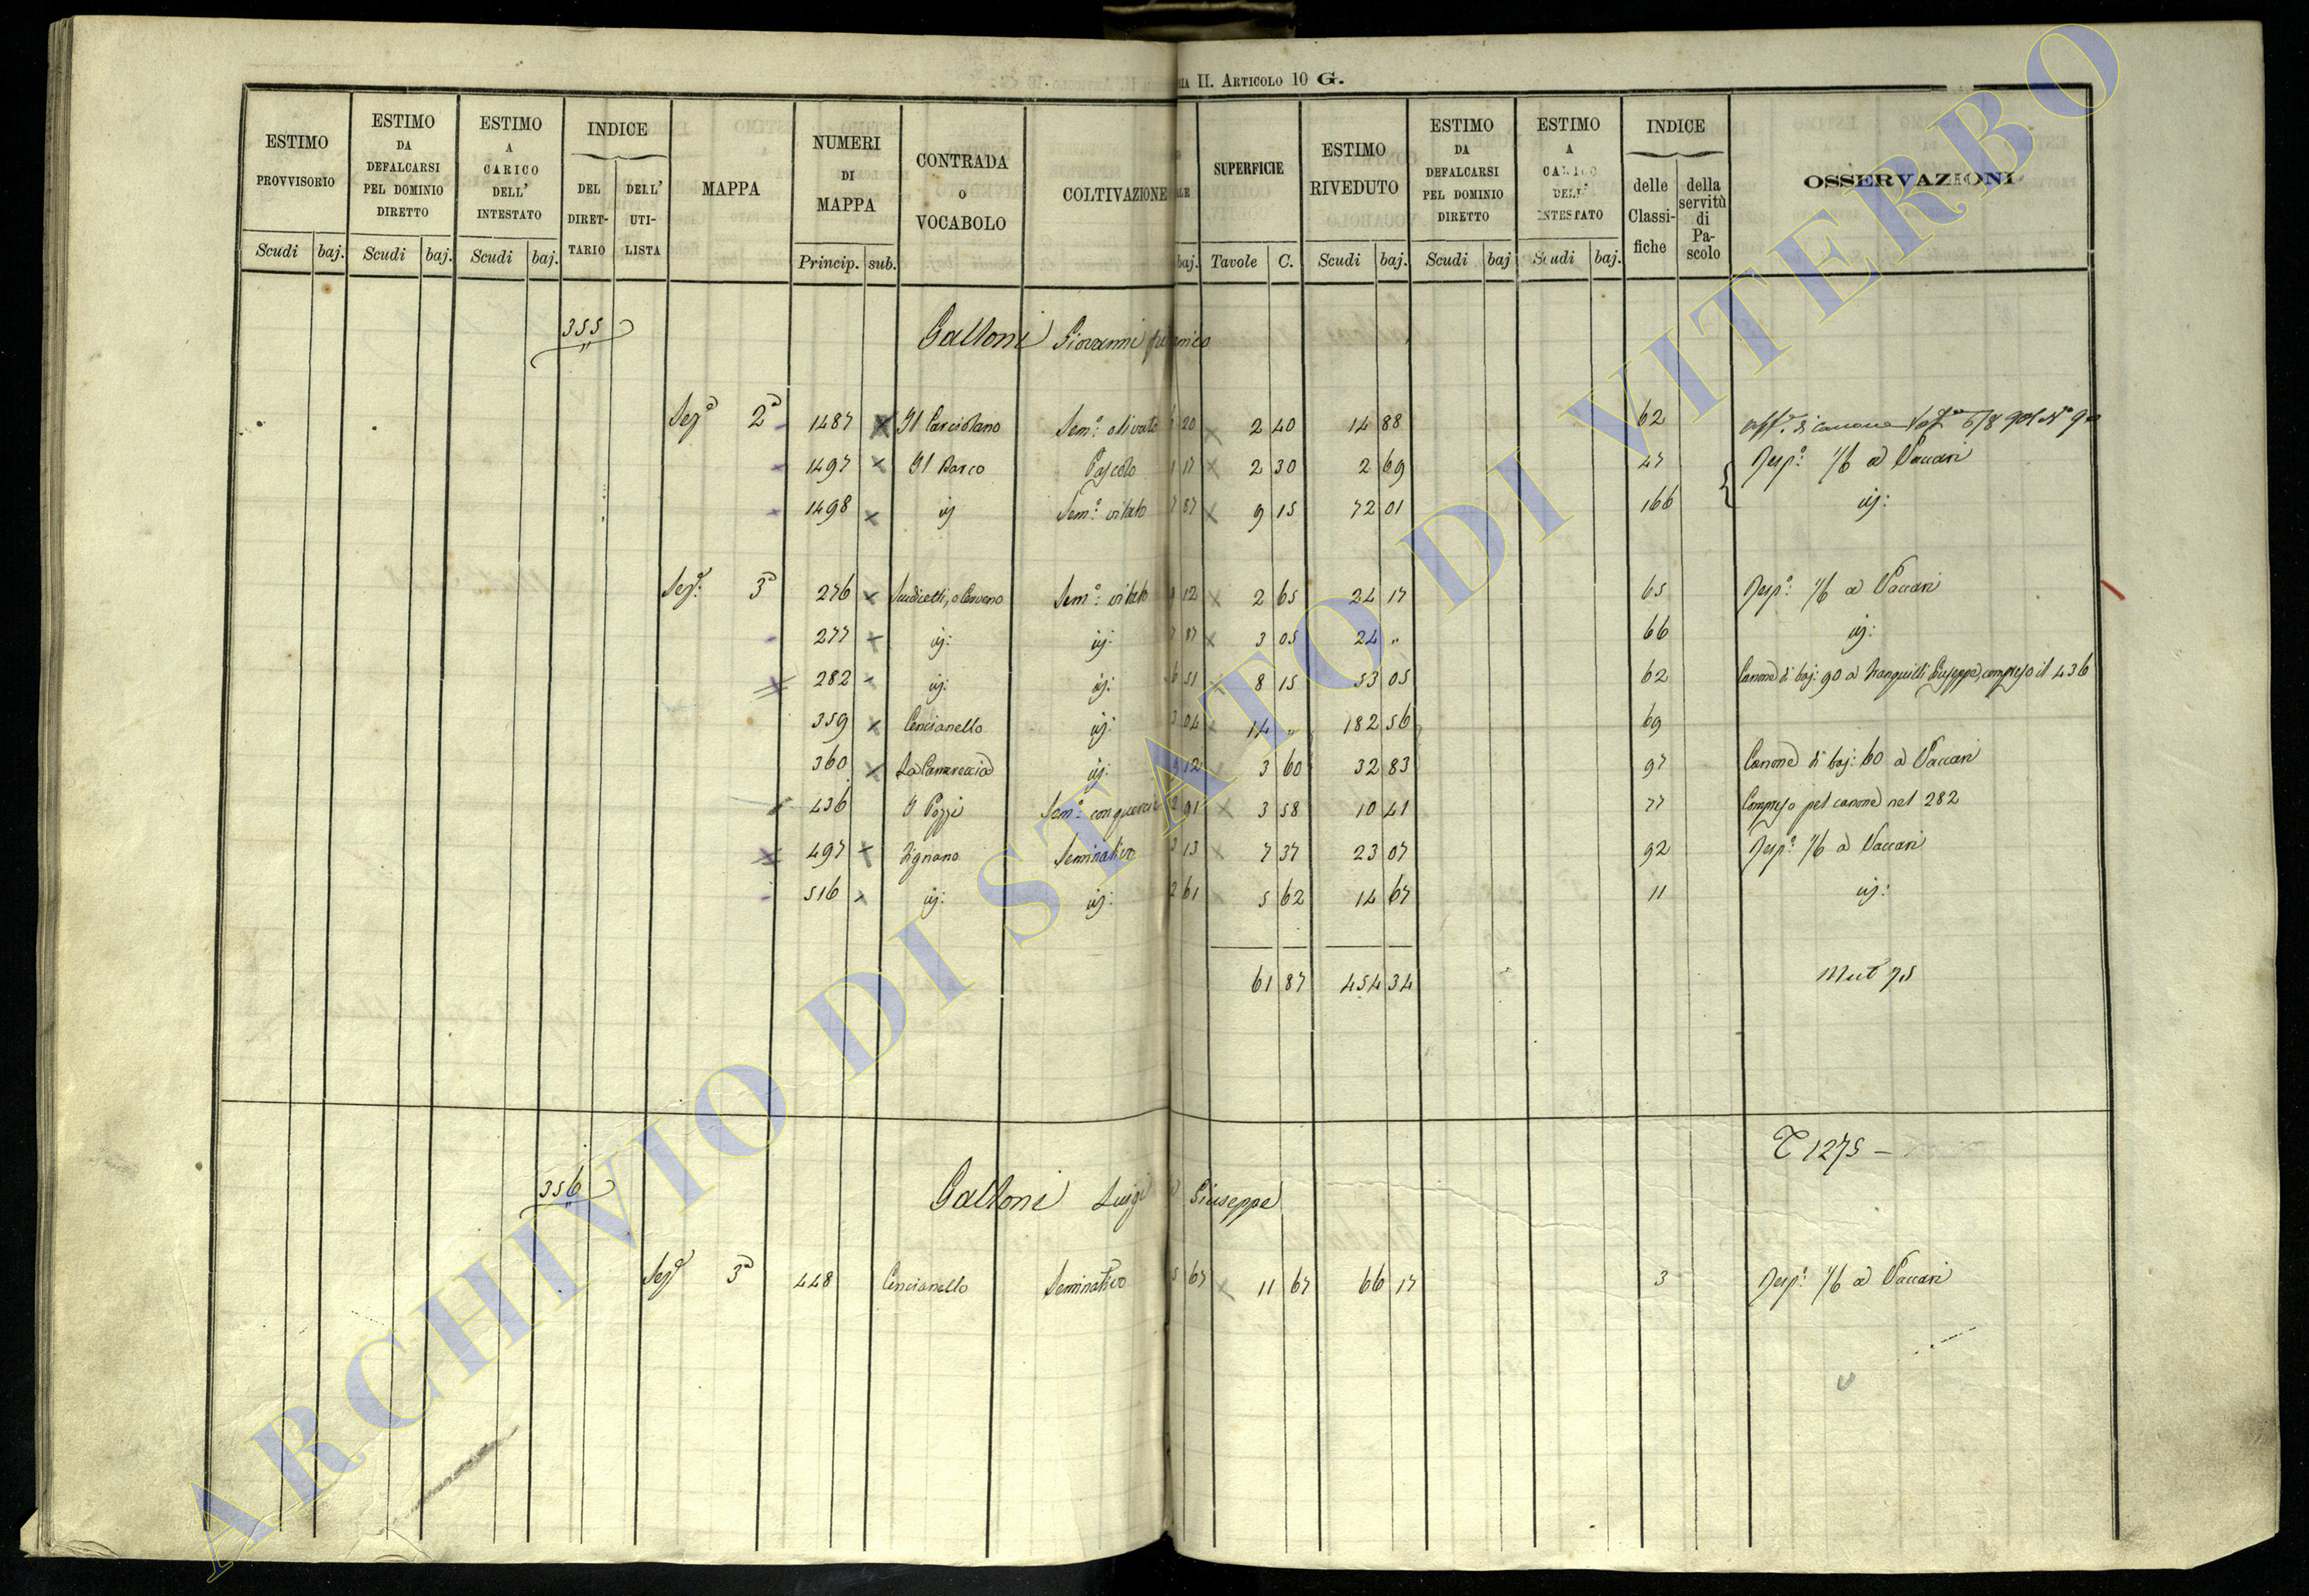 II. ARTICOLO 10 G.
ESTIMO PROVVISORIO Scudi baj.
ESTIMO DA DEFALCARSI PEL DOMINIO DIRETTO Scudi baj.
ESTIMO A CARICO DELL' INTESTATO Scudi baj.
INDICE DEL DIRET-TARIO DELL' UTI-LISTA
MAPPA
NUMERI DI MAPPA Princip. sub.
CONTRADA O VOCABOLO
COLTIVAZIONE
baj.
SUPERFICIE Tavole C.
ESTIMO RIVEDUTO Scudi baj.
ESTIMO DA DEFALCARSI PEL DOMINIO DIRETTO Scudi baj
ESTIMO A CARICO DELL' INTESTATO Scudi baj.
INDICE delle Classi-fiche della servitù di Pa-scolo
OSSERVAZIONI
355 Galloni Giovanni
Sez.ª 2ª 1487 Il Sem.º olivato 20 2 40 14 88 62
1497 Il Barco Pascolo 17 2 30 2 69 47 Risp.ª 1/6 a Vaccari
1498 id Sem.º vitato 87 9 15 72 01 166 id:
Sez.ª 3ª 276 Sem.º vitato 12 2 65 24 17 65 Risp.ª 1/6 a Vaccari
277 id: id: 87 3 05 24 " 66 id:
282 id: id: 6 51 8 15 53 05 62 Canone di baj: 90 a Tranquilli Giuseppe, compreso il 436
359 Cencianello id: 3 04 14 " 182 56 69
360 La Cannareccia id: 9 12 3 60 32 83 97 Canone di baj: 60 a Vaccari
436 I Pozzi Sem.º con querce 2 91 3 58 10 41 77 Compreso pel canone nel 282
497 Vignano Seminativo 3 13 7 37 23 07 92 Risp.ª 1/6 a Vaccari
516 id: id: 2 61 5 62 14 67 11 id:
61 87 454 34 Mut 75
T 1275 -
356 Galloni Luigi Giuseppe
Sez.ª 3ª 448 Cencianello Seminativo 5 67 11 67 66 17 3 Risp.ª 1/6 a Vaccari
ARCHIVIO DI STATO DI VITERBO